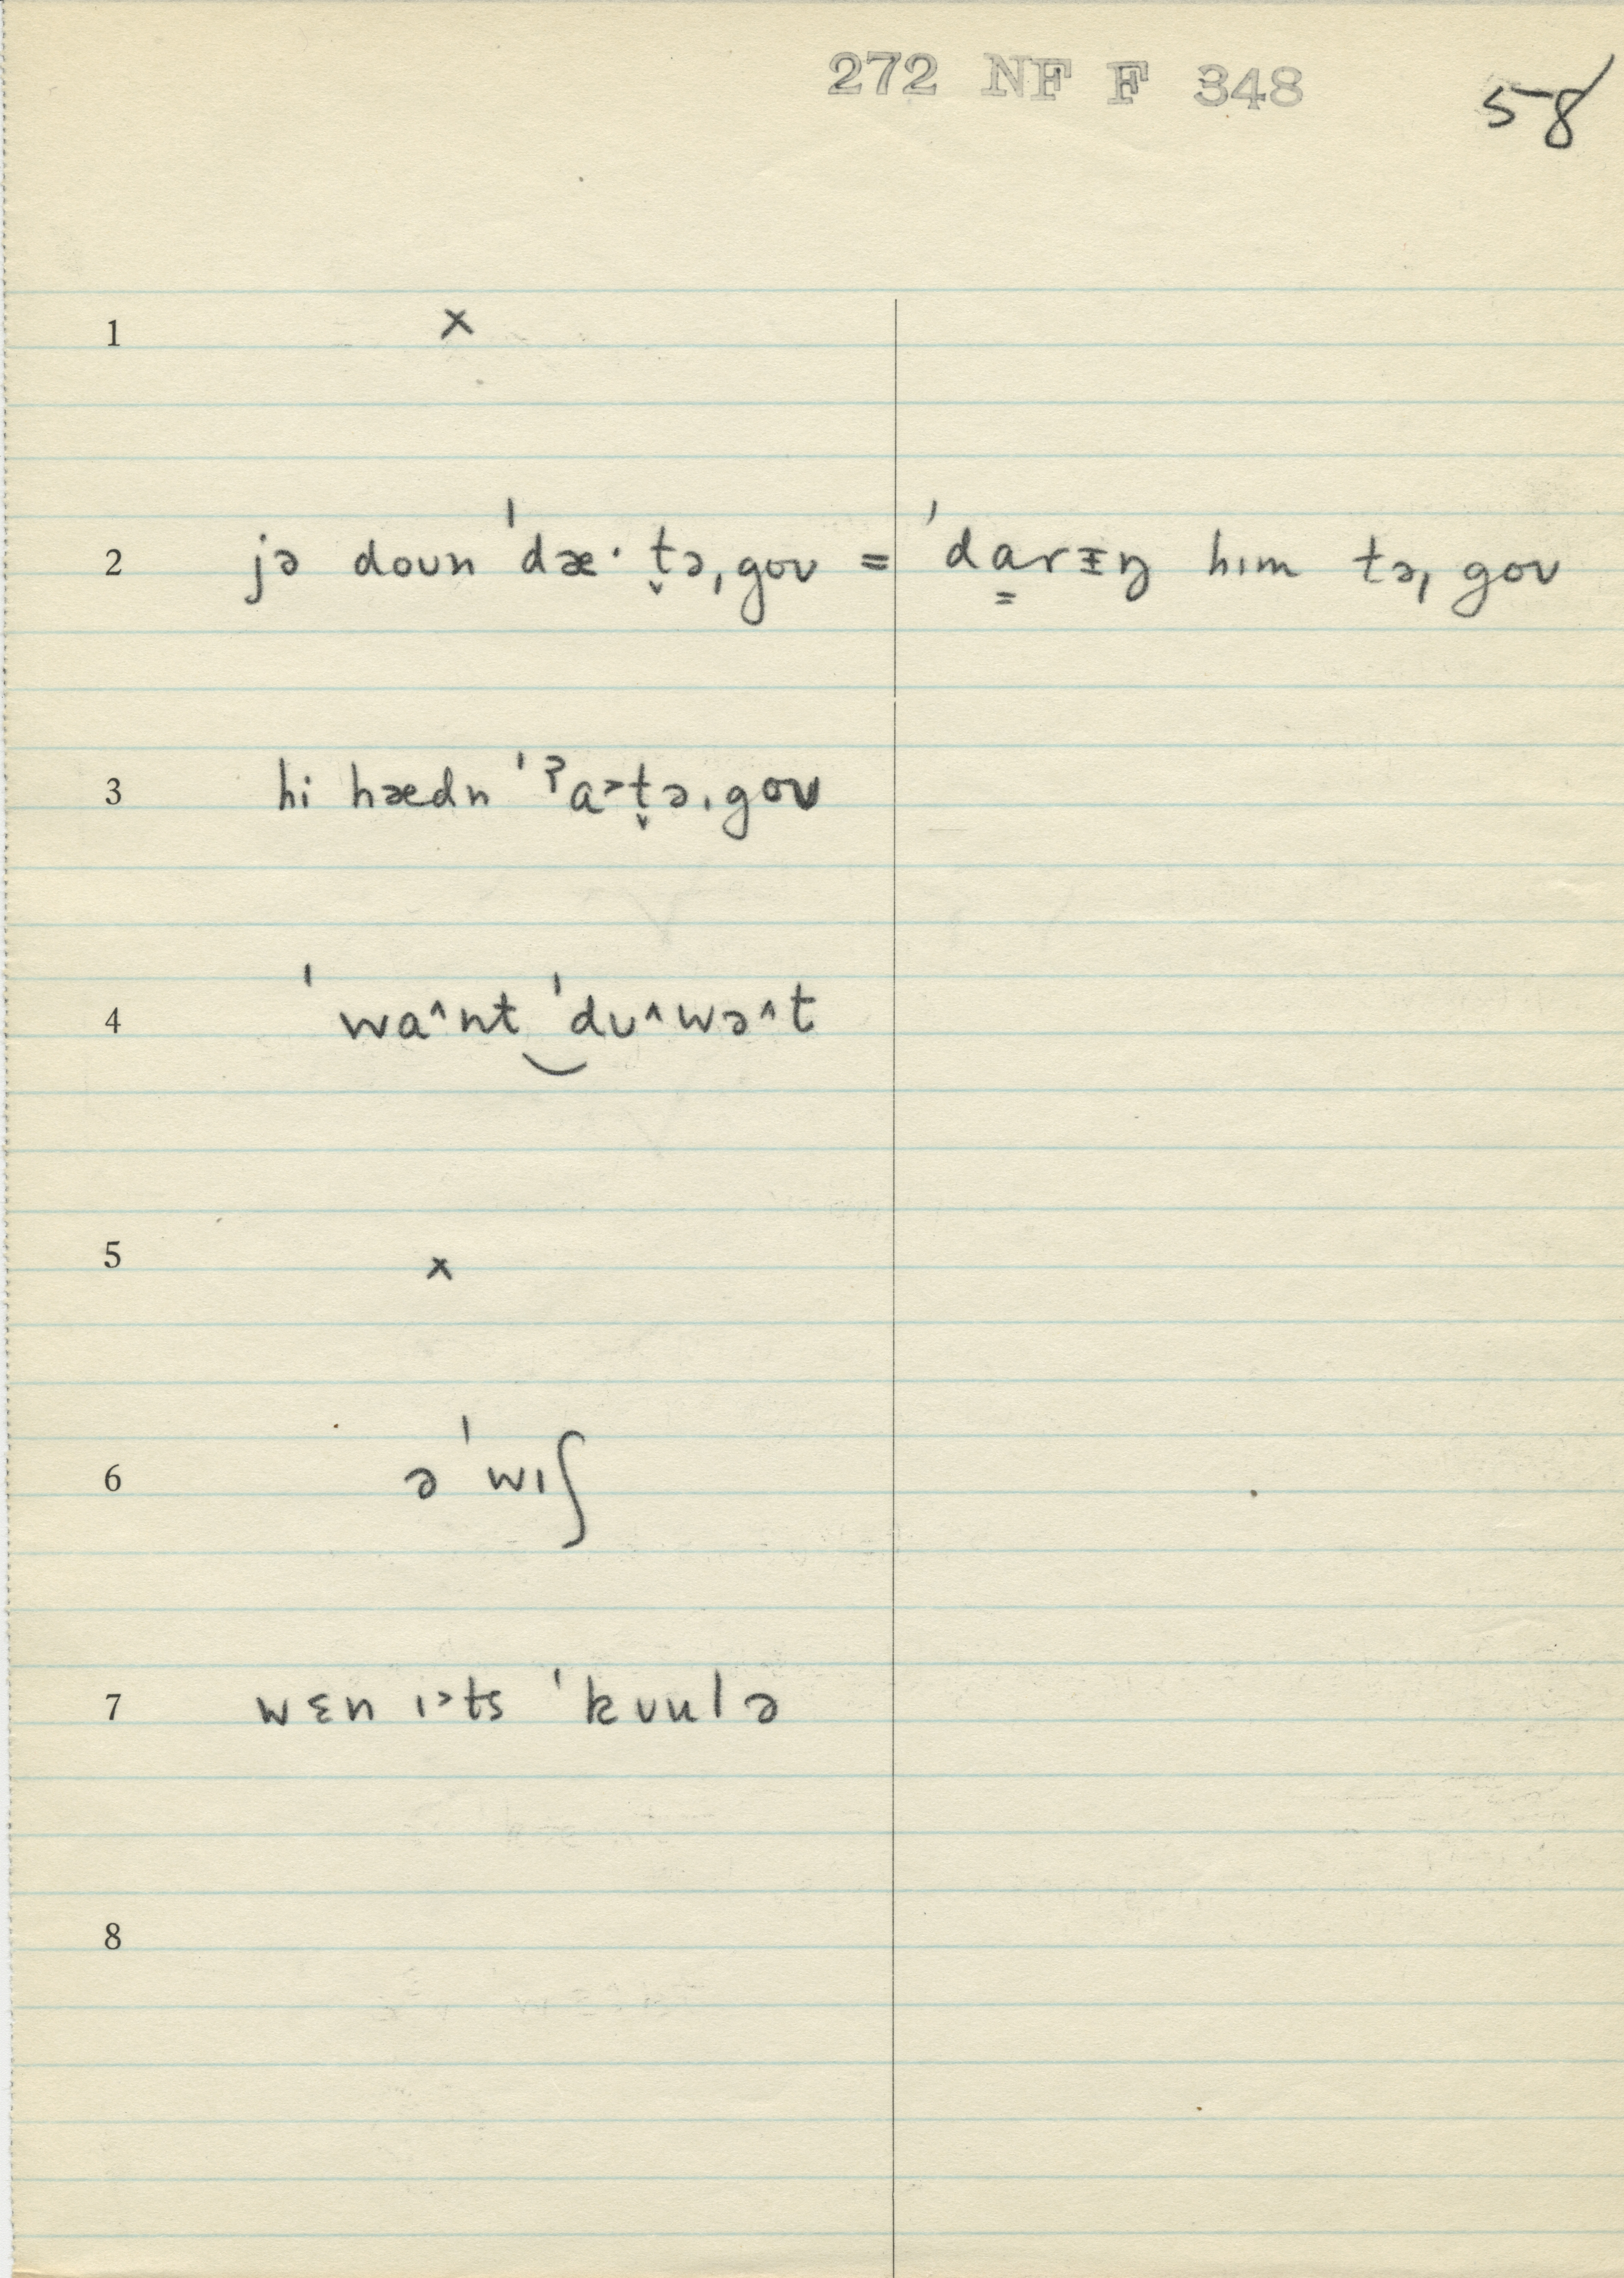 272 NF F 348 58
1 ×
2 jə doʊn ˈdæ· t̬ə, goʊ = ˈda̳rɪ̵ŋ hɪm tə, goʊ
3 hi hædn ˈˀa˃t̬ə, goʊ
4 ˈwa˄nt‿ˈdu˄wə˄t
5 ×
6 ə ˈwɪʃ
7 wɛn ɪ˃ts ˈkʊulə
8